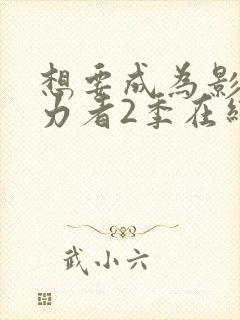 想要成为影
力者2季在线
武小六